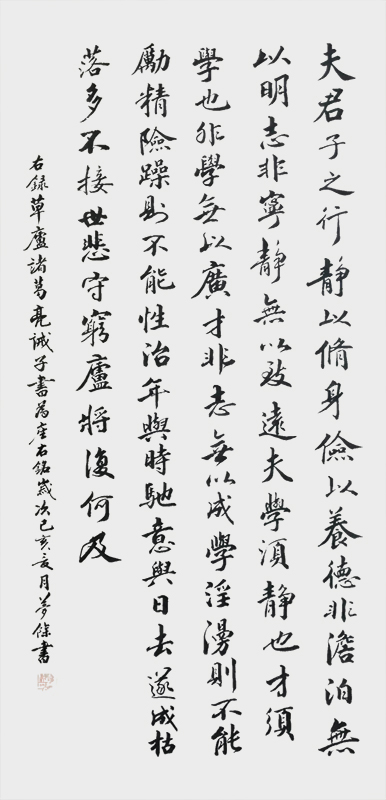 夫君子之行靜以脩身儉以養德非澹泊無
以明志非寧靜無以致遠夫學須靜也才須
學也非學無以廣才非志無以成學淫漫則不能
勵精險躁則不能性治年與時馳意與日去遂成枯
落多不接世悲守窮廬將復何及
右録草廬諸葛亮誡子書為座右銘歲次己亥亥月夢餘書